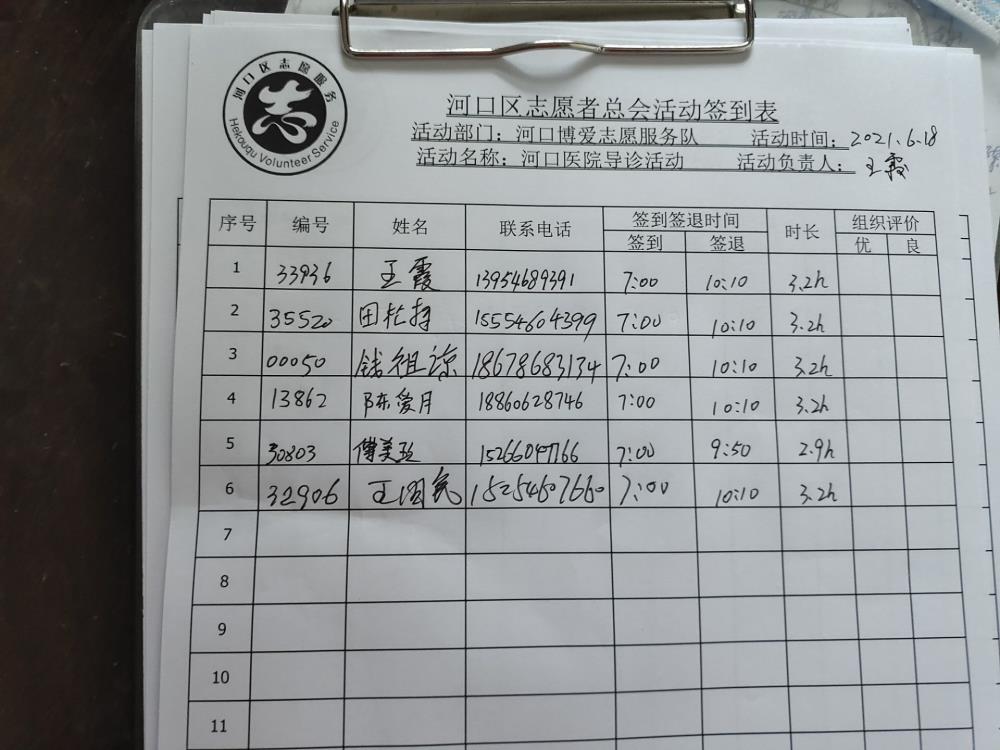 河口区志愿服务
志
Hekouqu Volunteer Service
河口区志愿者总会活动签到表
活动部门：河口博爱志愿服务队 活动时间：2021.6.18
活动名称：河口医院导诊活动 活动负责人：王霞
序号 编号 姓名 联系电话 签到签退时间 时长 组织评价
签到 签退 优 良
1 33936 王霞 13954689391 7:00 10:10 3.2h
2 35520 田 15554604399 7:00 10:10 3.2h
3 00050 钱祖 18678683134 7:00 10:10 3.2h
4 13862 陈爱月 18860628746 7:00 10:10 3.2h
5 30803 傅美 7:00 9:50 2.9h
6 32906 王国民 15254607660 7:00 10:10 3.2h
7
8
9
10
11